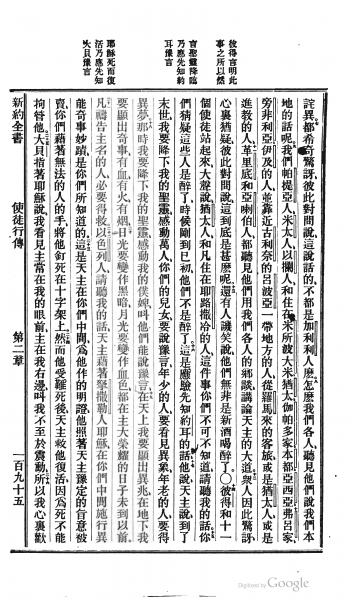 彼得言明此
事之所以然
言聖靈降臨
乃應先知約
耳豫言
耶穌死而復
活乃應先知
大闢豫言
詫異都希奇驚訝彼此對問說這說話的不都是加利利人麽怎麽我們各人聽見他們說我們本
地的話呢我們帕提亞人米太人以攔人和住在米所波大米猶太伽帕多家本都亞西亞弗呂家
旁非利亞伊及的人並靠近古利奈的呂彼亞一帶地方的人從羅馬來的客旅或是猶太人或是
進教的人革哩底和亞喇伯的人都聽見他們用我們各人的鄉談講論天主的大道衆人因此驚訝
心裏猶疑彼此對問說這到底是甚麽呢還有人譏笑說他們無非是新酒喝醉了○彼得和十一
個使徒站起來大聲說猶太人和凡住在耶路撒冷的人這件事你們不可不知道請聽我的話你
們猜疑這些人是醉了時候剛到巳初他們不是醉了這是應驗先知約耳的話他說天主說到了
末世我要降下我的聖靈感動萬人你們的兒女要說豫言年少的人要看見異象年老的人要得
異夢那時我要降下我的聖靈感動我的僕婢叫他們能說豫言在天上我要顯出異兆在地下我
要顯出奇事有血有火有烟日光要變作黑暗月光要變作血色都在主大榮耀的日子未到以前
凡禱告主名的人必要得救以色列人請聽我的話天主藉著拏撒勒人耶穌在你們中間施行異
能奇事妙蹟是你們所知道的這是天主在你們中間爲他作的明證他照著天主豫定的旨意被
賣你們藉著無法的人的手將他釘死在十字架上然而他受難死後天主救他復活因爲死不能
拘管他大闢指著耶穌說我看見主常在我的眼前主在我右邊叫我不至於震動所以我心裏歡
新約全書 使徒行傳 第二章 一百九十五
Digitized by Google